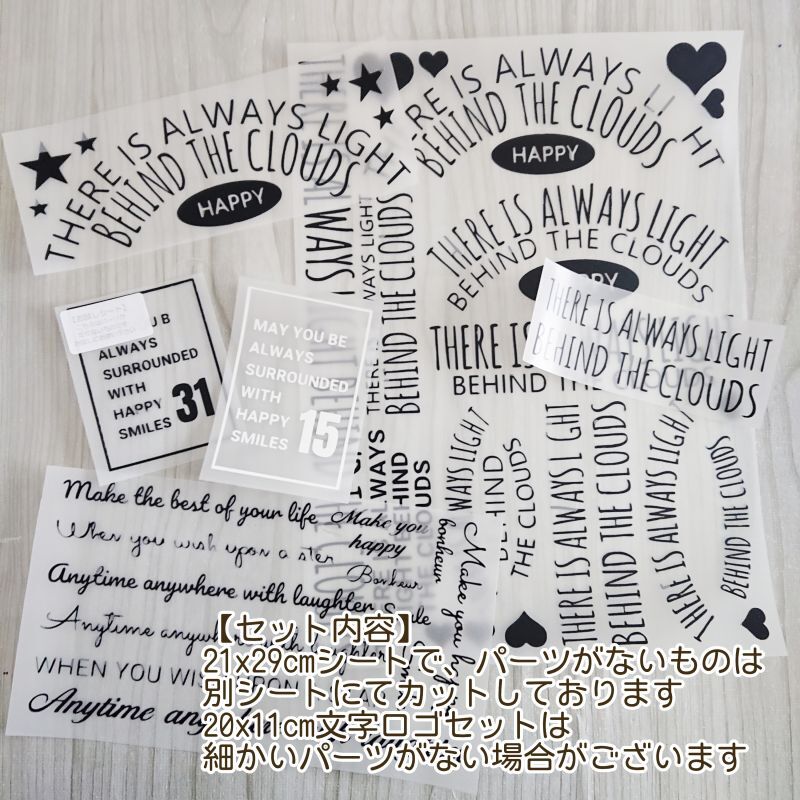 THERE IS ALWAYS LIGHT
BEHIND THE CLOUDS
HAPPY
RE IS ALWAYS LIGHT
BEHIND THE CLOUDS
HAPPY
THERE IS ALWAYS LIGHT
BEHIND THE CLOUDS
THERE IS ALWAYS LIGHT
BEHIND THE CLOUDS
THERE IS
BEHIND THE
ALWAYS
SURROUNDED
WITH
HAPPY
SMILES 31
MAY YOU BE
ALWAYS
SURROUNDED
WITH
HAPPY
SMILES 15
WAYS LIGHT
BEHIND THE CLOUDS
WAYS LIGHT
THE CLOUDS
THERE IS ALWAYS LIGHT
BEHIND THE CLOUDS
THERE IS ALWAYS LIGHT
BEHIND THE CLOUDS
Make the best of your life
Make you
happy
When you wish upon a star
Bonheur
Anytime anywhere with laughter
Anytime anywhere with laughter
WHEN YOU WIS
Anytime any
Make you happy
bonheur
【セット内容】
21x29cmシートで、パーツがないものは
別シートにてカットしております
20x11cm文字ロゴセットは
細かいパーツがない場合がございます